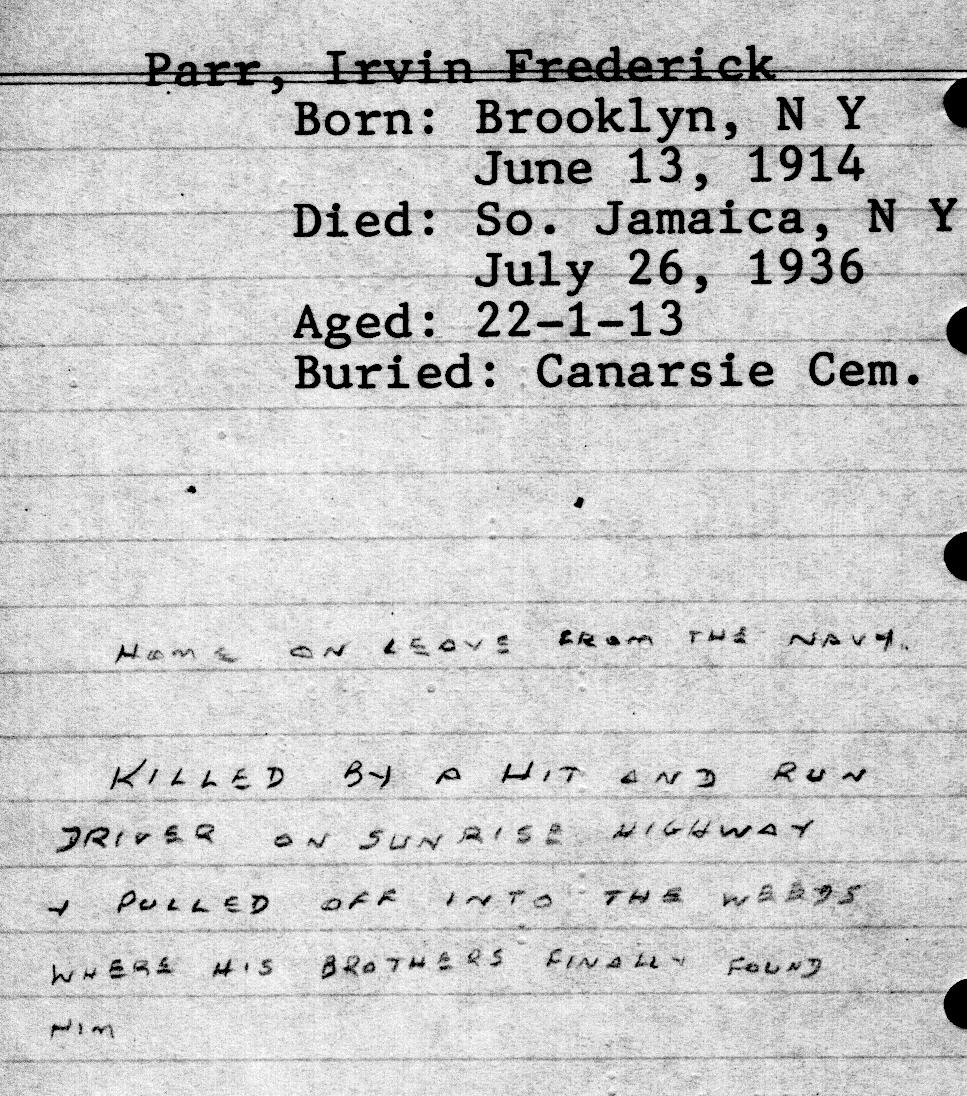 Parr, Irvin Frederick
Born: Brooklyn, N Y
June 13, 1914
Died: So. Jamaica, N Y
July 26, 1936
Aged: 22-1-13
Buried: Canarsie Cem.
HOME ON LEAVE FROM THE NAVY.
KILLED BY A HIT AND RUN
DRIVER ON SUNRISE HIGHWAY
+ PULLED OFF INTO THE WEEDS
WHERE HIS BROTHERS FINALLY FOUND
HIM